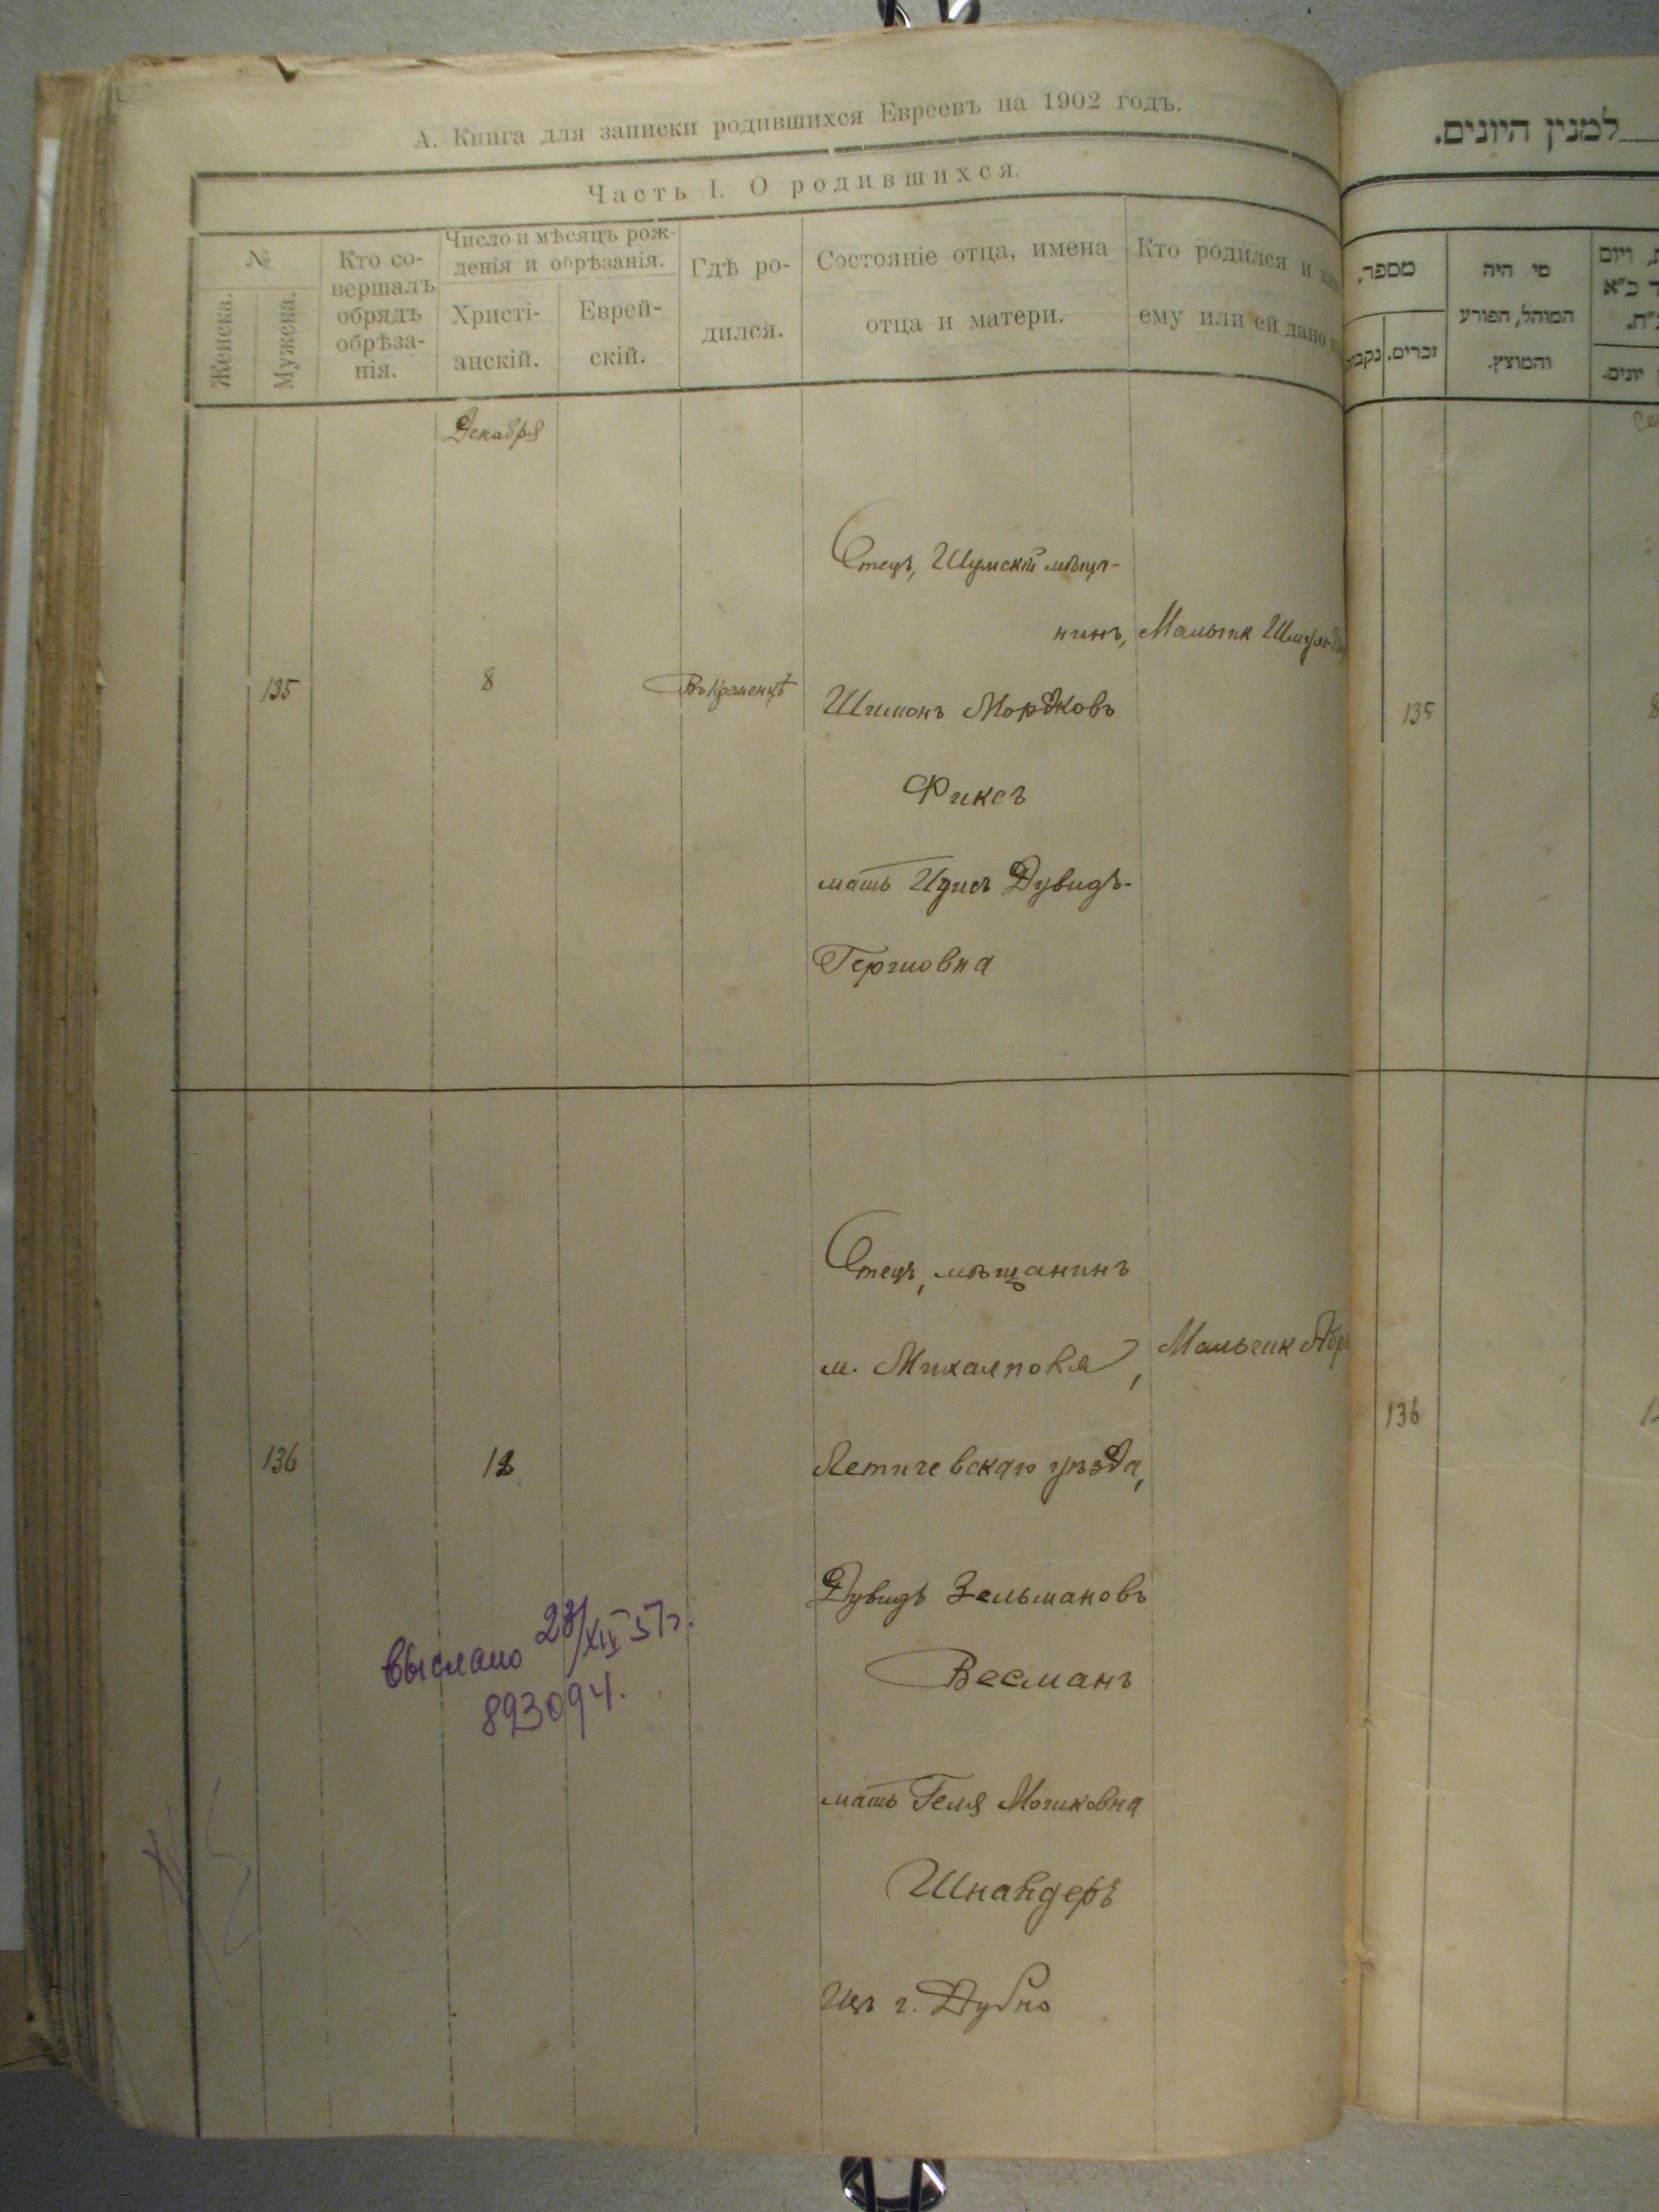 А. Книга для записки родившихся Евреевъ на 1902 годъ.
Часть I. О родившихся.
№
Женска.
Мужска.
Кто со-
вершалъ
обрядъ
обрѣза-
нія.
Число и мѣсяцъ рож-
денія и обрѣзанія.
Христі-
анскій.
Еврей-
скій.
Гдѣ ро-
дился.
Состояніе отца, имена
отца и матери.
Кто родился и
ему или ей дано
Декабря
135
8
Въ Кременцѣ
Отецъ, Шумскій мѣща-
нинъ,
Шимонъ Мордковъ
Фиксъ
мать Идись Дувидъ-
Гершовна
Мальчик
136
12
Отецъ, мѣщанинъ
м. Михалполя,
Летичевскаго уѣзда,
Дувидъ Зельмановъ
Весманъ
мать Геля Мошковна
Шнайдеръ
Изъ г. Дубно
Мальчик Абр
выслано 28/XII 57г.
893094.
למנין היונים.
מספר.
נקבות
זכרים.
מי היה
המוהל, הפורע
והמוצץ.
ויום
כ"א
יונים.
135
8
136